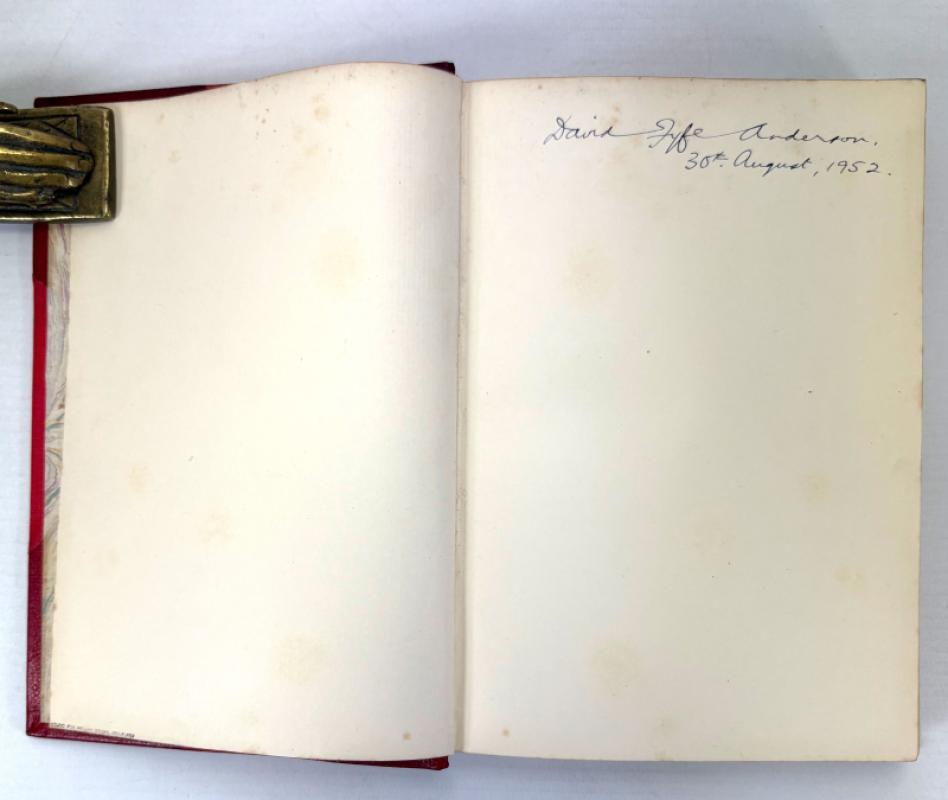 David Fyfe Anderson.
30th. August, 1952.